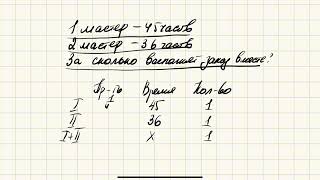 1 мастер – 45 часов
2 мастер – 36 часов
За сколько выполнят заказ вместе?
Пр-ть Время Кол-во
I 45 1
II 36 1
I+II x 1